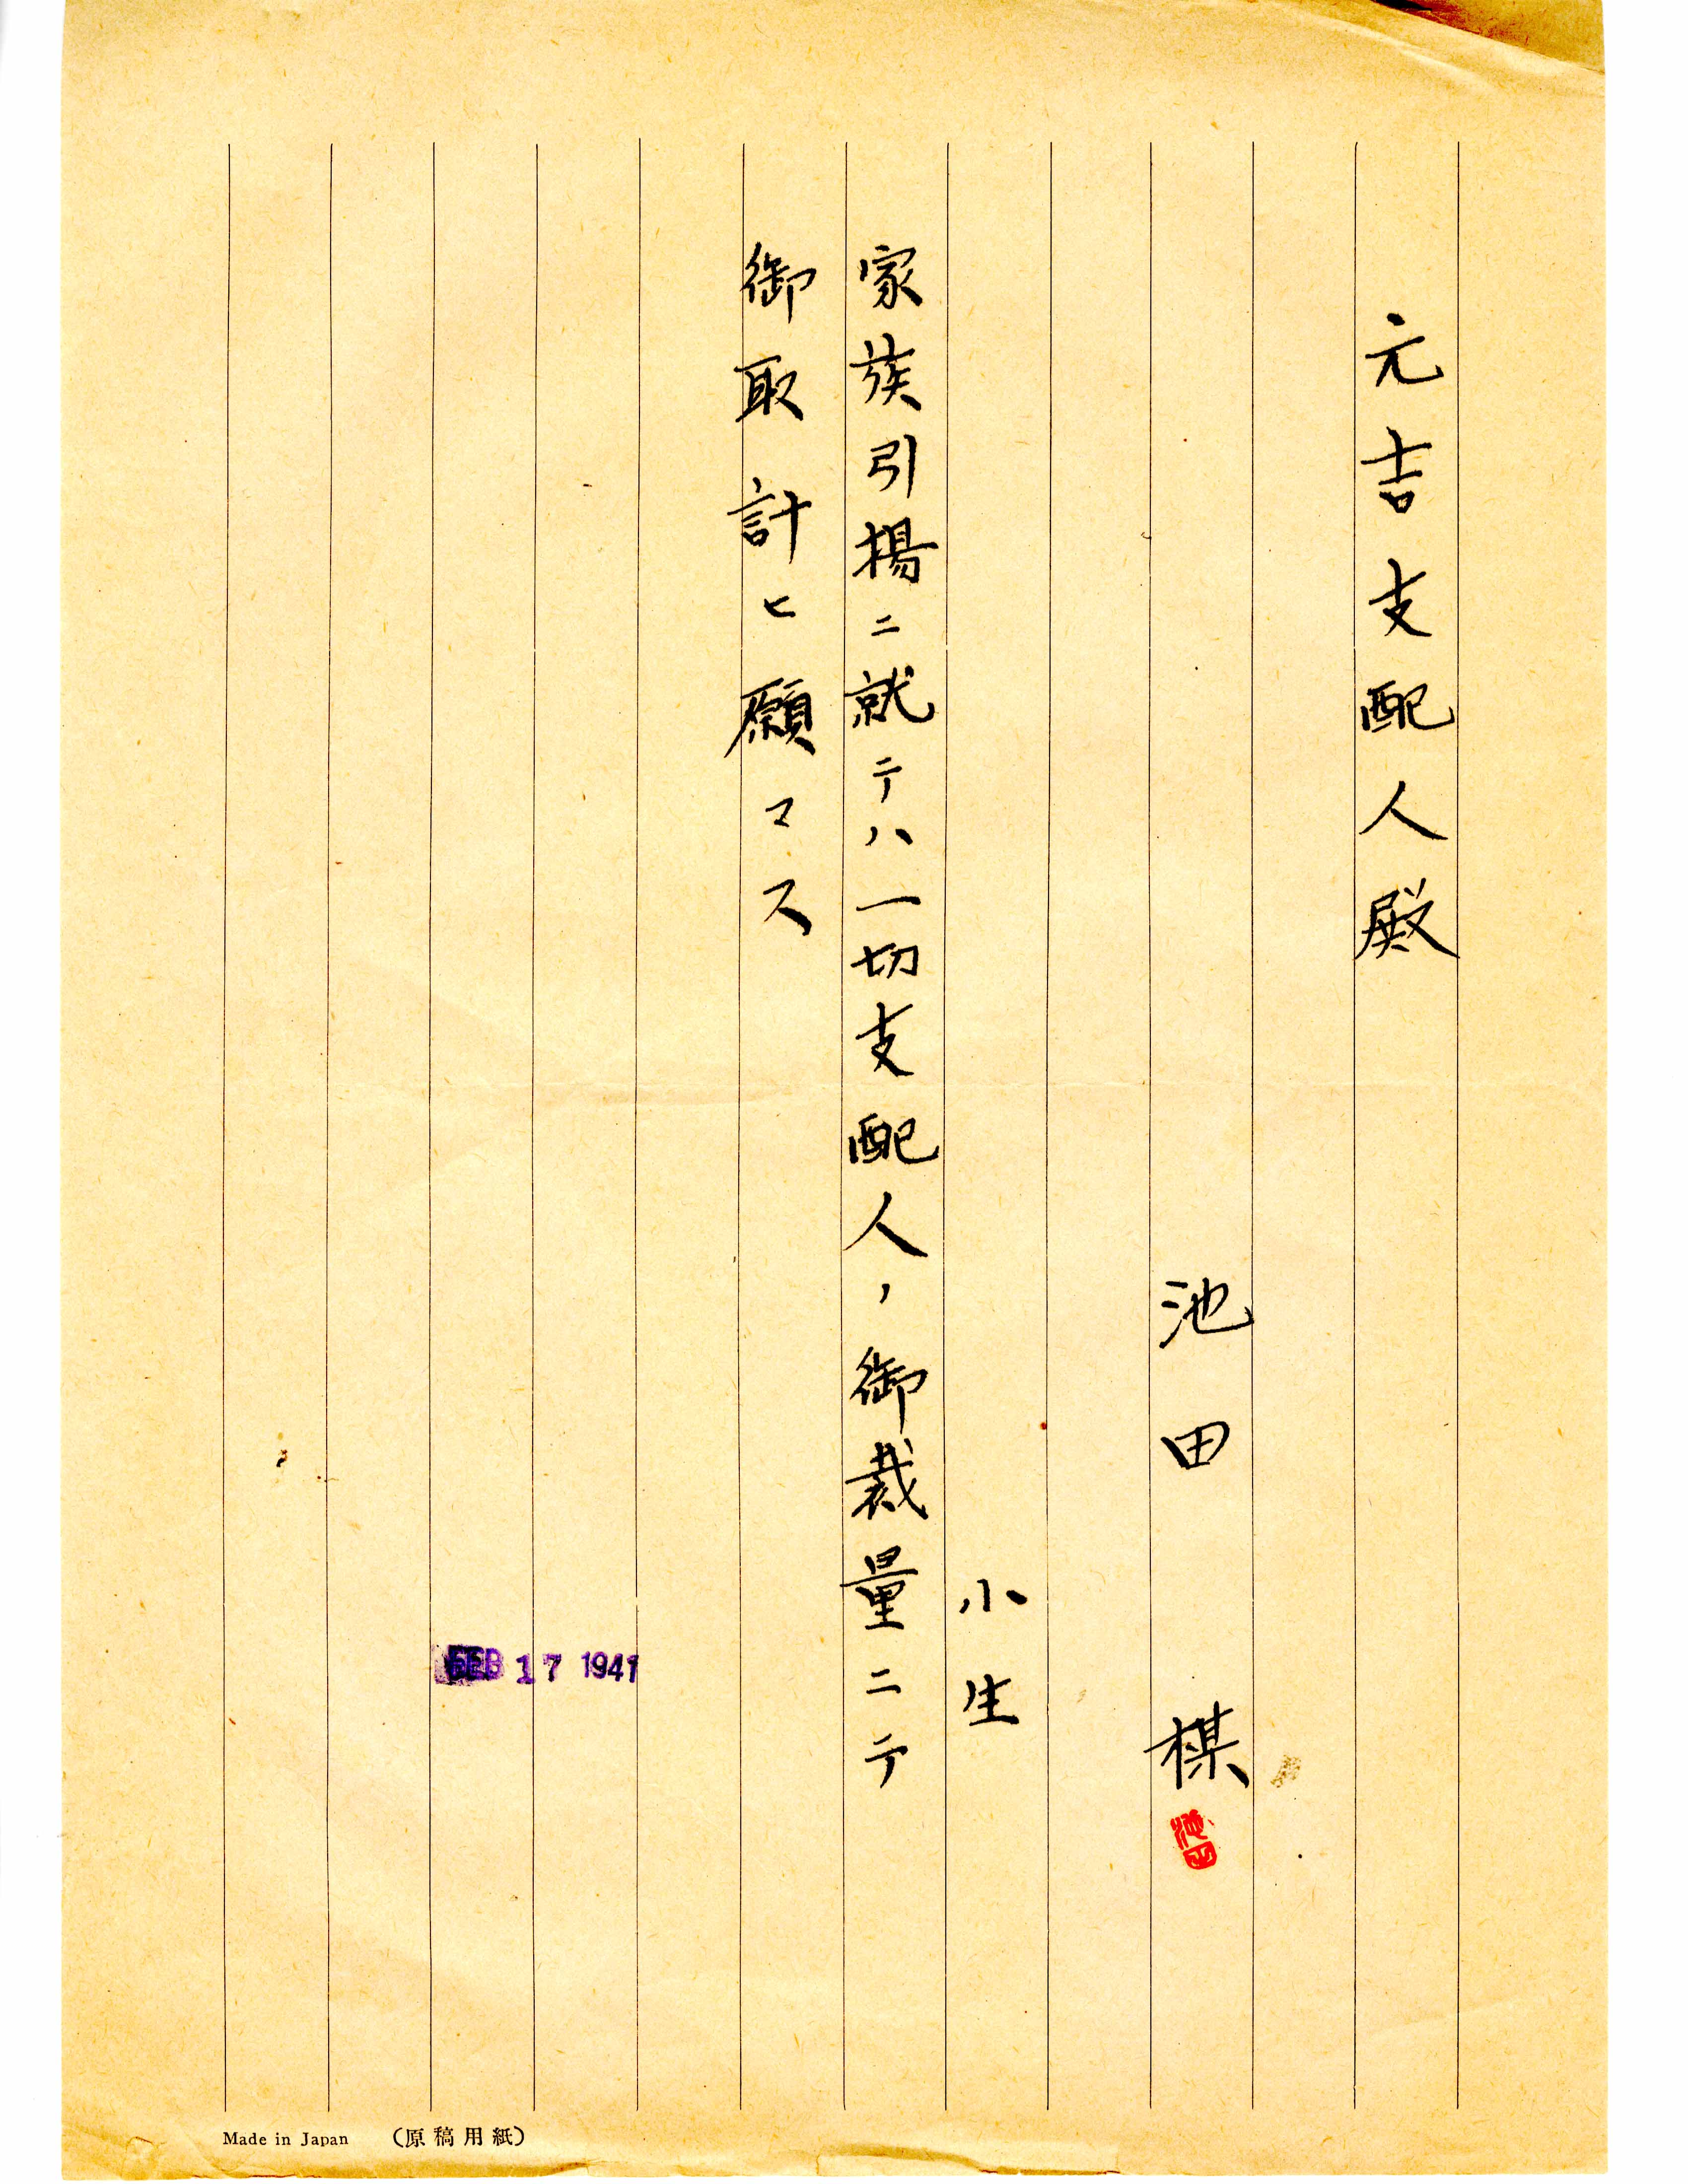 元吉支配人殿
池田楳
池田
小生
家族引揚ニ就テハ一切支配人ノ御裁量ニテ
御取計ヒ願マス
FEB 17 1941
Made in Japan (原稿用紙)